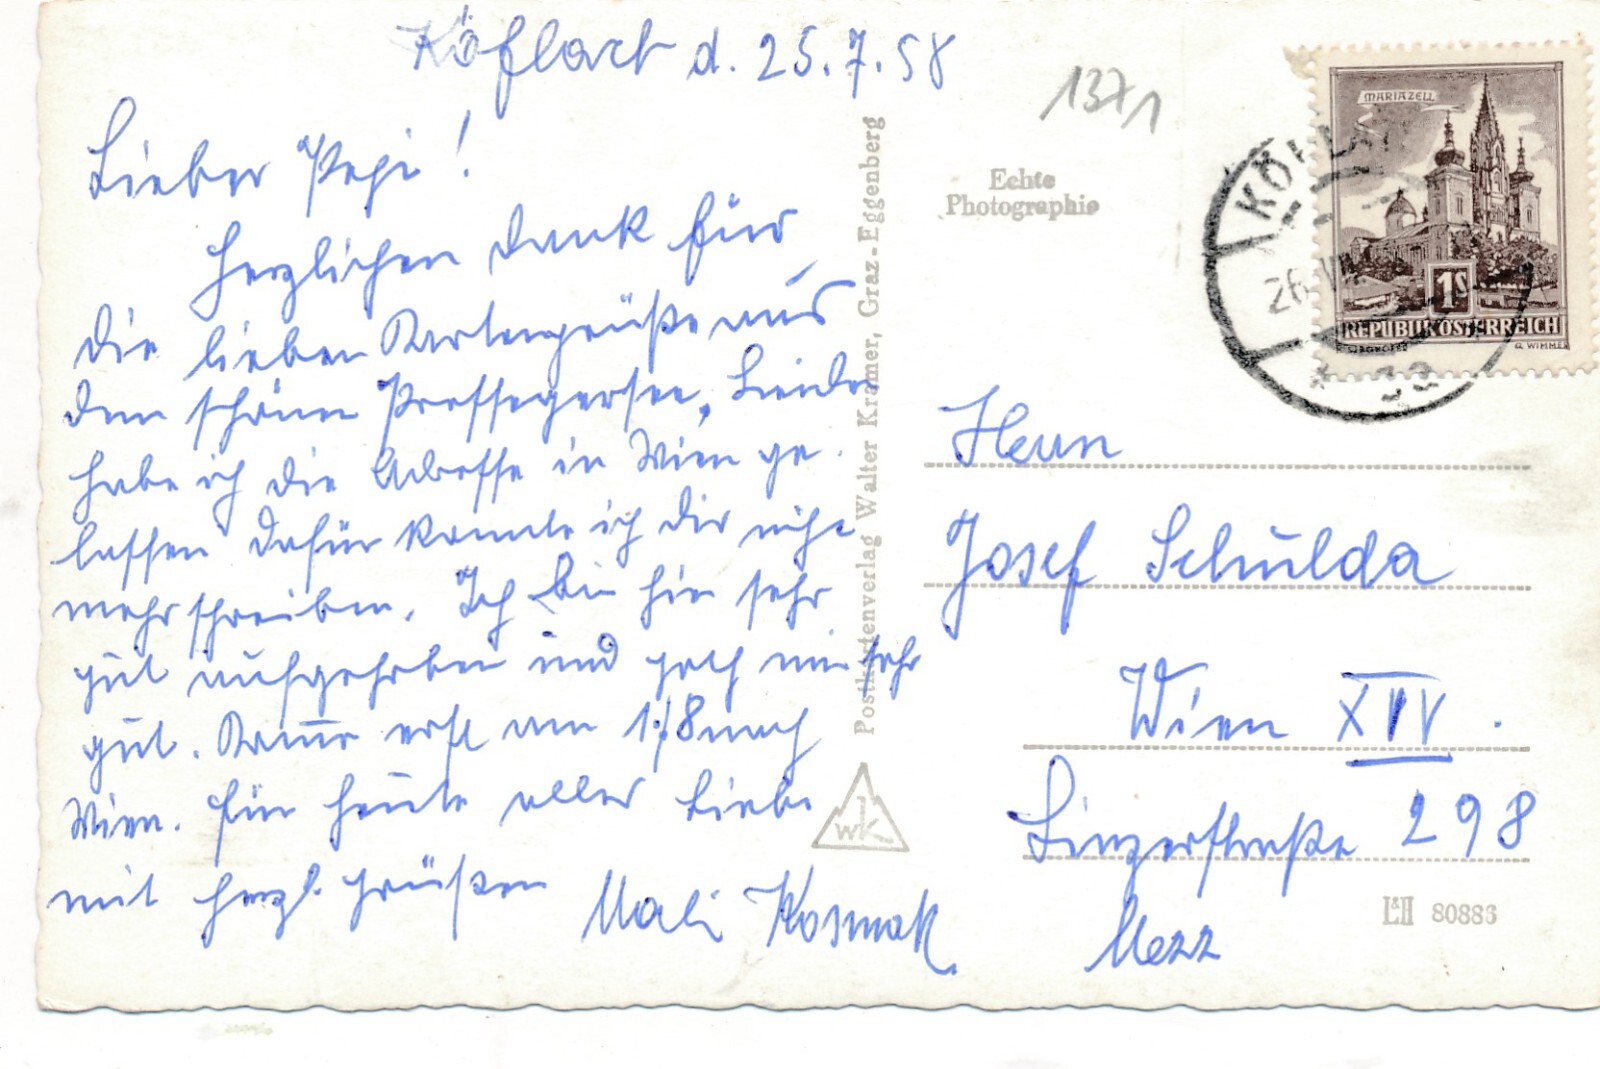 Köflach d. 25.7.58
Lieber Pepi!
Herzlichen Dank für
die lieben Kartengrüße aus
dem schönen Pressegersee, Leider
habe ich die Adresse in Wien ge-
lassen dafür konnte ich dir nicht
mehr schreiben. Ich bin hier sehr
gut aufgehoben und geth mir sehr
gut. Komme erst am 1/8 nach
Wien. Für heute alles Liebe
mit herzl. Grüßen Mali Kosmak.
Postkartenverlag Walter Kramer, Graz-Eggenberg
WK
1371
Echte
Photographie
MARIAZELL
1S
REPUBLIK ÖSTERREICH
G. WIMMER
KÖFLACH
26.VII
Herrn
Josef Schulda
Wien XIV.
Linzerstraße 298
Mezz
L&H 80886